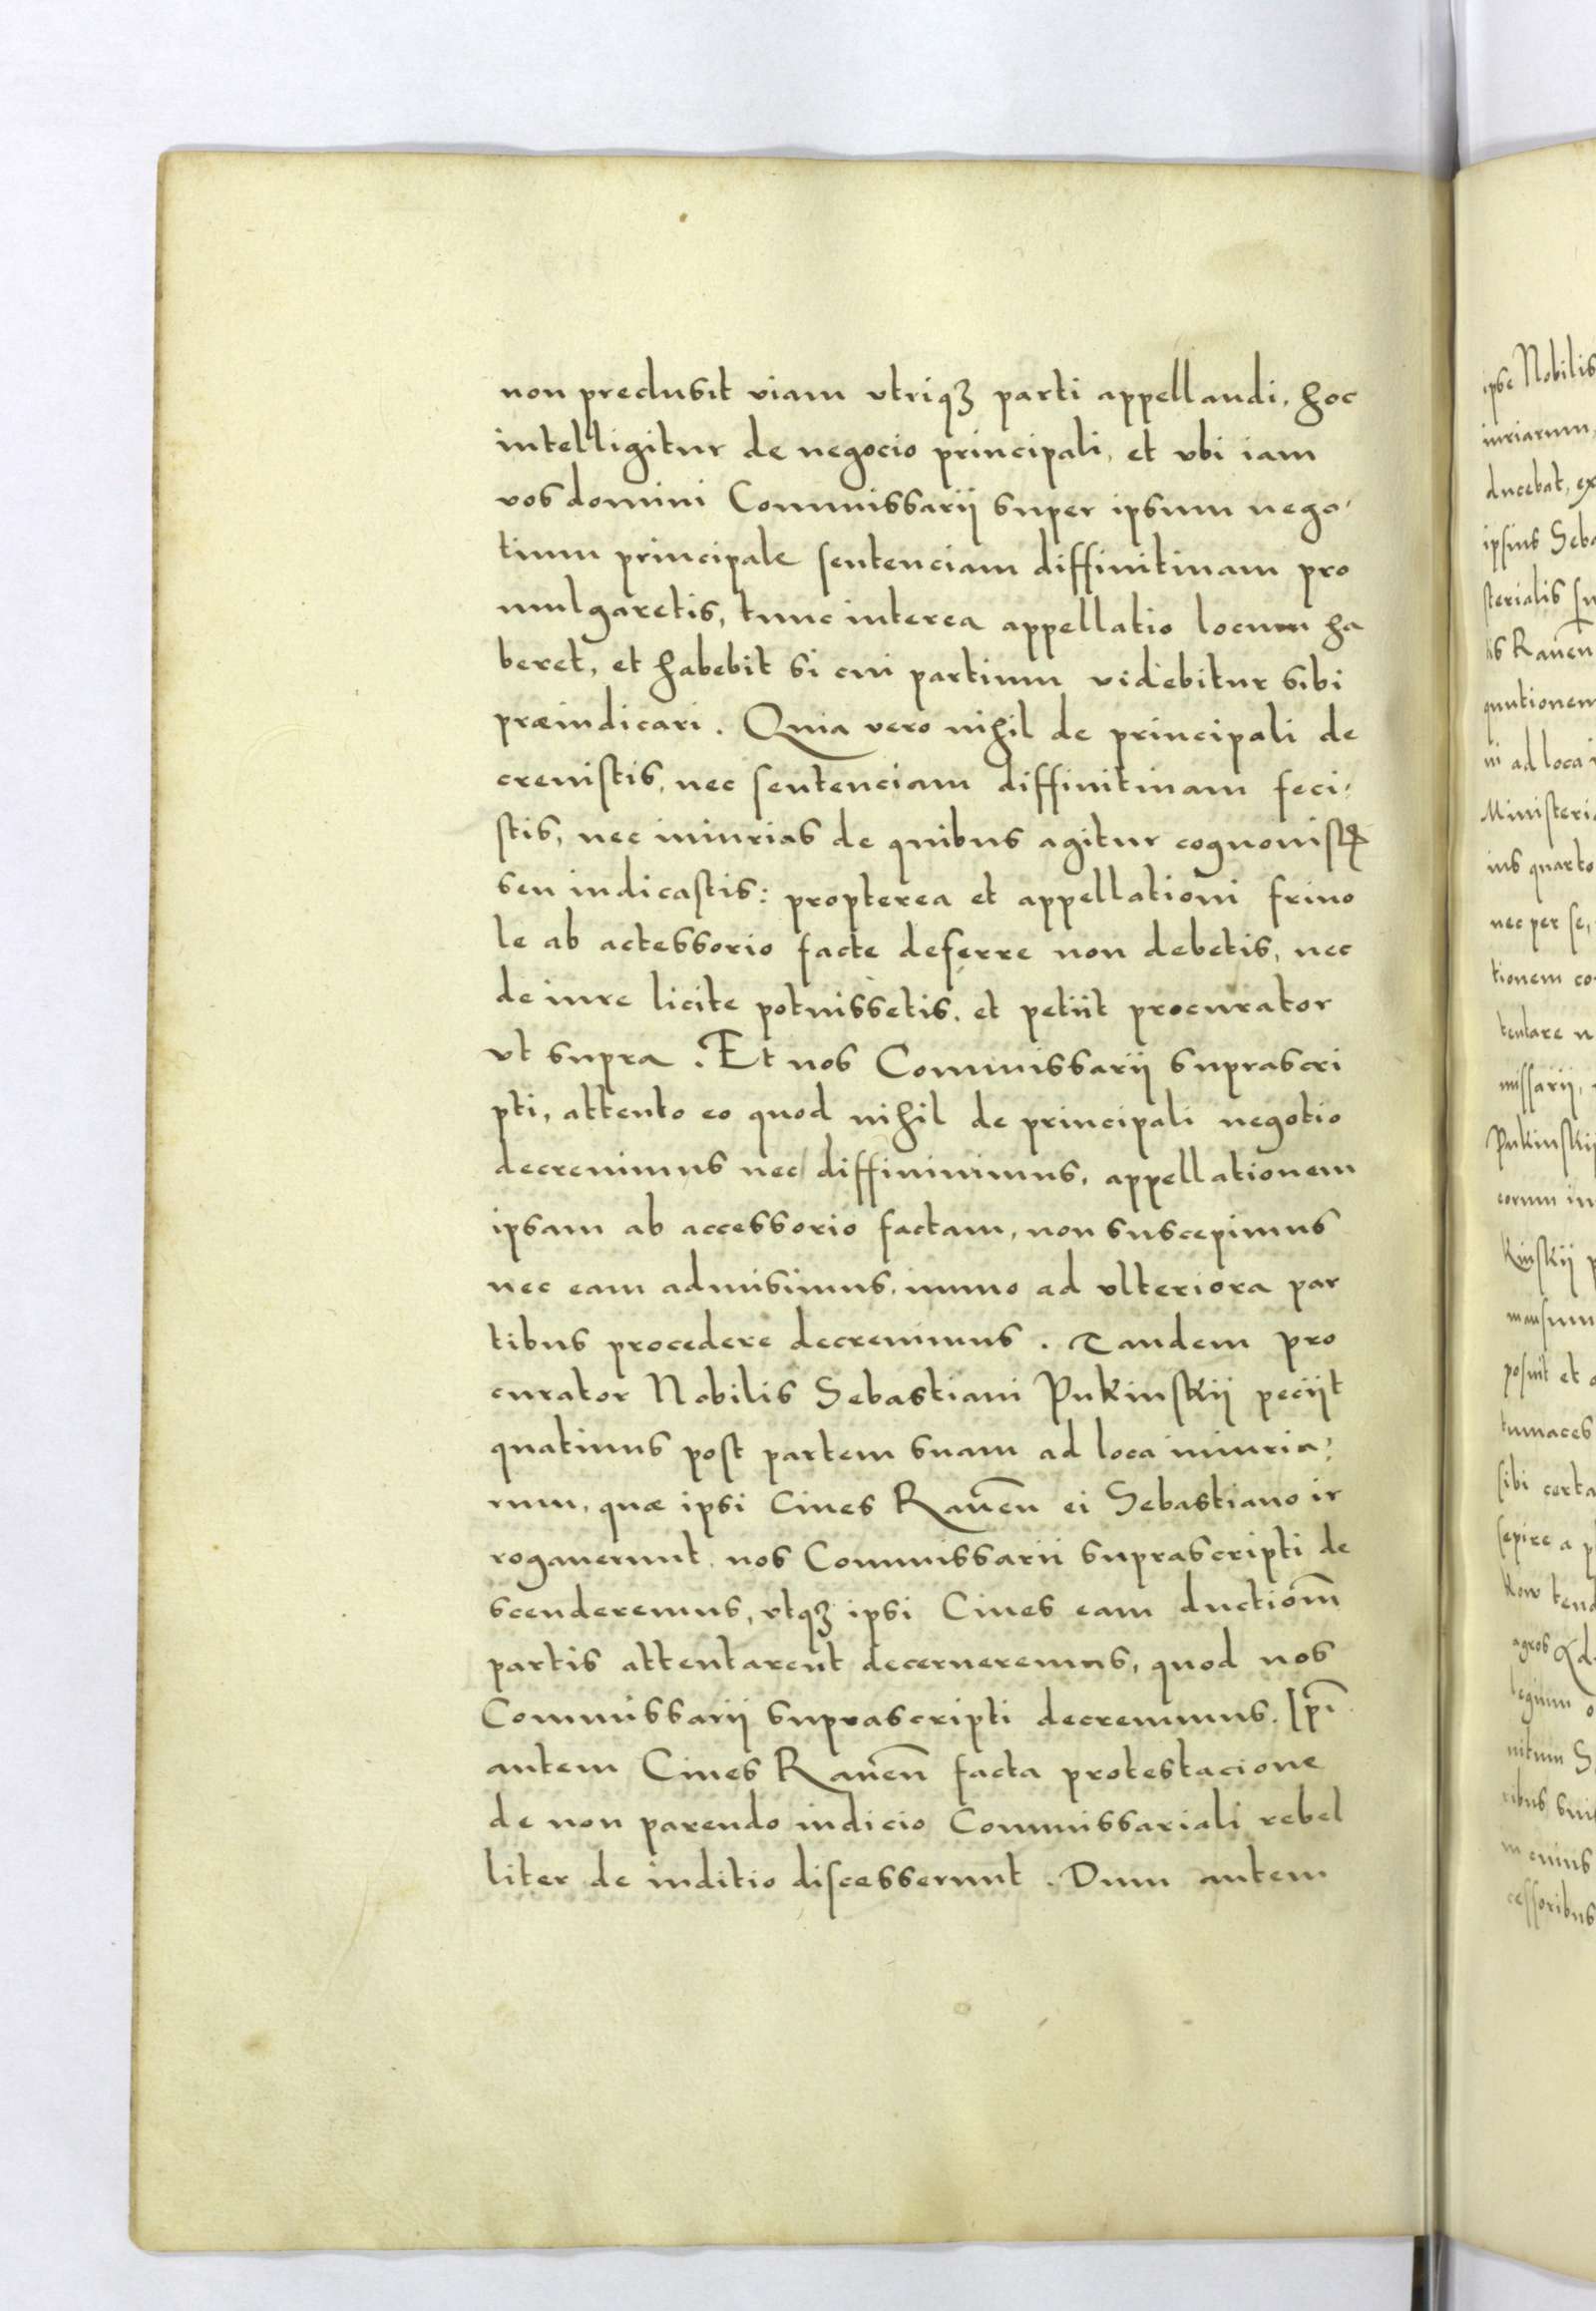 non preclusit viam vtriqꝫ parti appellandi, hoc
intelligitur de negocio principali, et vbi iam
vos domini Commissarij super ipsum nego-
tium principale sentenciam diffinitiuam pro
mulgaretis, tunc interea appellatio locum ha
beret, et habebit si cui partium videbitur sibi
præiudicari. Quia vero nihil de principali de
creuistis, nec sentenciam diffinitiuam feci-
stis, nec iniurias de quibus agitur cognouistꝭ
seu iudicastis: propterea et appellationi friuo
le ab actessorio facte deferre non debetis, nec
de iure licite potuissetis, et petiit procurator
vt supra. Et nos Commissarij suprascri
pti, attento eo quod nihil de principali negotio
decreuimus nec diffiniuimus, appellationem
ipsam ab accessorio factam, non suscepimus
nec eam admisimus, immo ad vlteriora par
tibus procedere decreuimus. Tandem pro
curator Nobilis Sebastiani Pukinskij peciit
quatinus post partem suam ad loca iniuria-
rum, quæ ipsi Ciues Rauen̄ ei Sebastiano ir
rogauerunt, nos Commissarii suprascripti de
scenderemus, vtqꝫ ipsi Ciues eam ductiom̄
partis attentarent decerneremus, quod nos
Commissarij suprascripti decreuimus. Ip̄i
autem Ciues Rauen̄ facta protestacione
de non parendo iudicio Commissariali rebel
liter de iuditio discesserunt. Dum autem
ipse Nobilis
iuriarum,
ducebat, ex
ipsius Seba
sterialis
Rauen
ad loca
Ministeria
ius quarto
nec per se,
tionem co
tentare n
missarij,
Pukinskij
eorum in
kinskij p
posuit et
tumaces
sibi certa
sepire a p
kow tend
agros
nitum S
ribus suis
m cuius
cessoribus